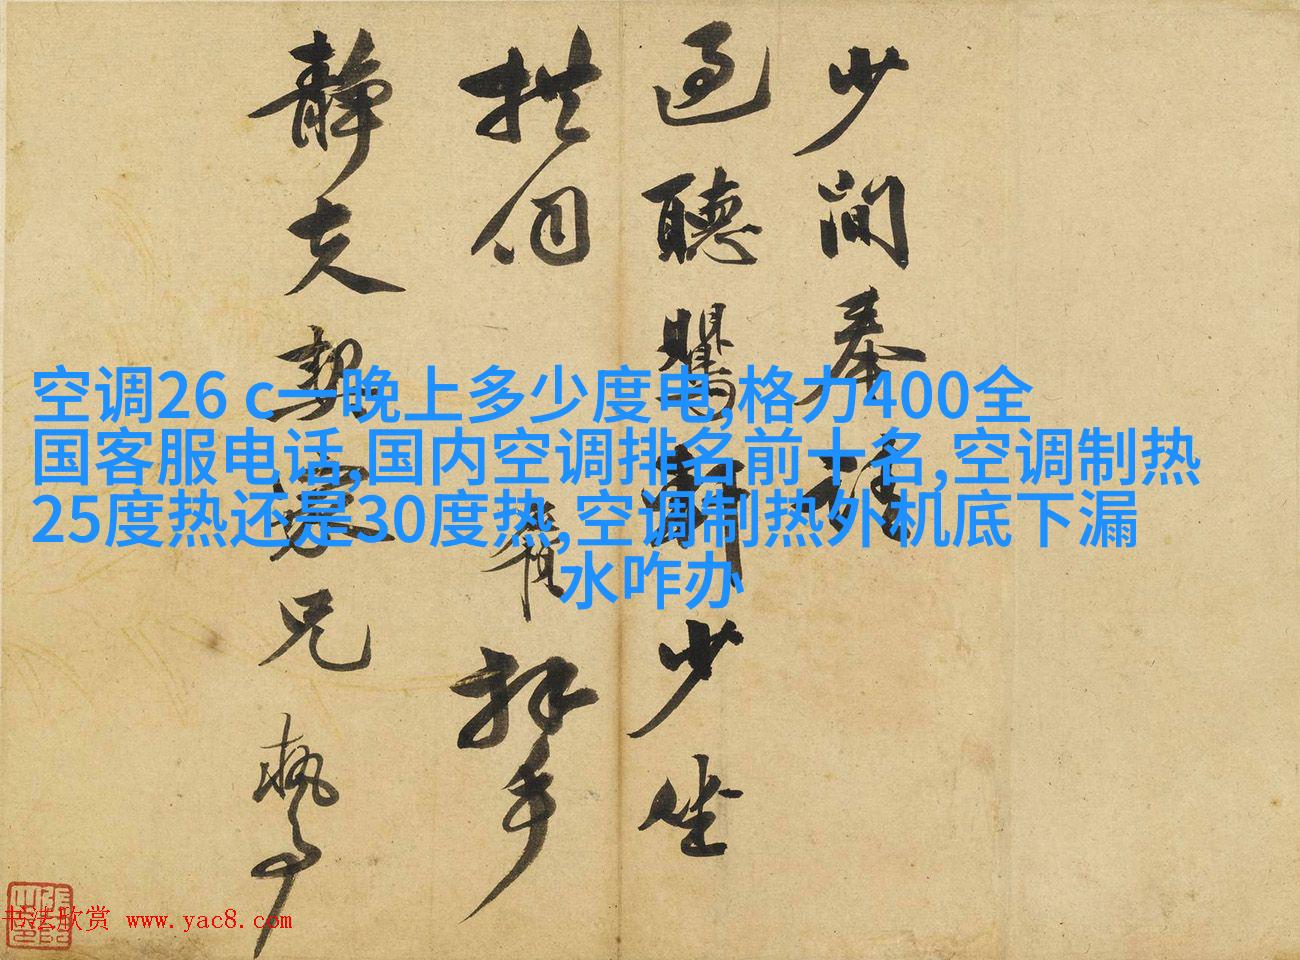 少间奉
过聽
少坐
拱伺
拜手
静夫契
兄
執事
空调26 c一晚上多少度电,格力400全
国客服电话,国内空调排名前十名,空调制热
25度热还是30度热,空调制热外机底下漏
水咋办
书法欣赏 www.yac8.com